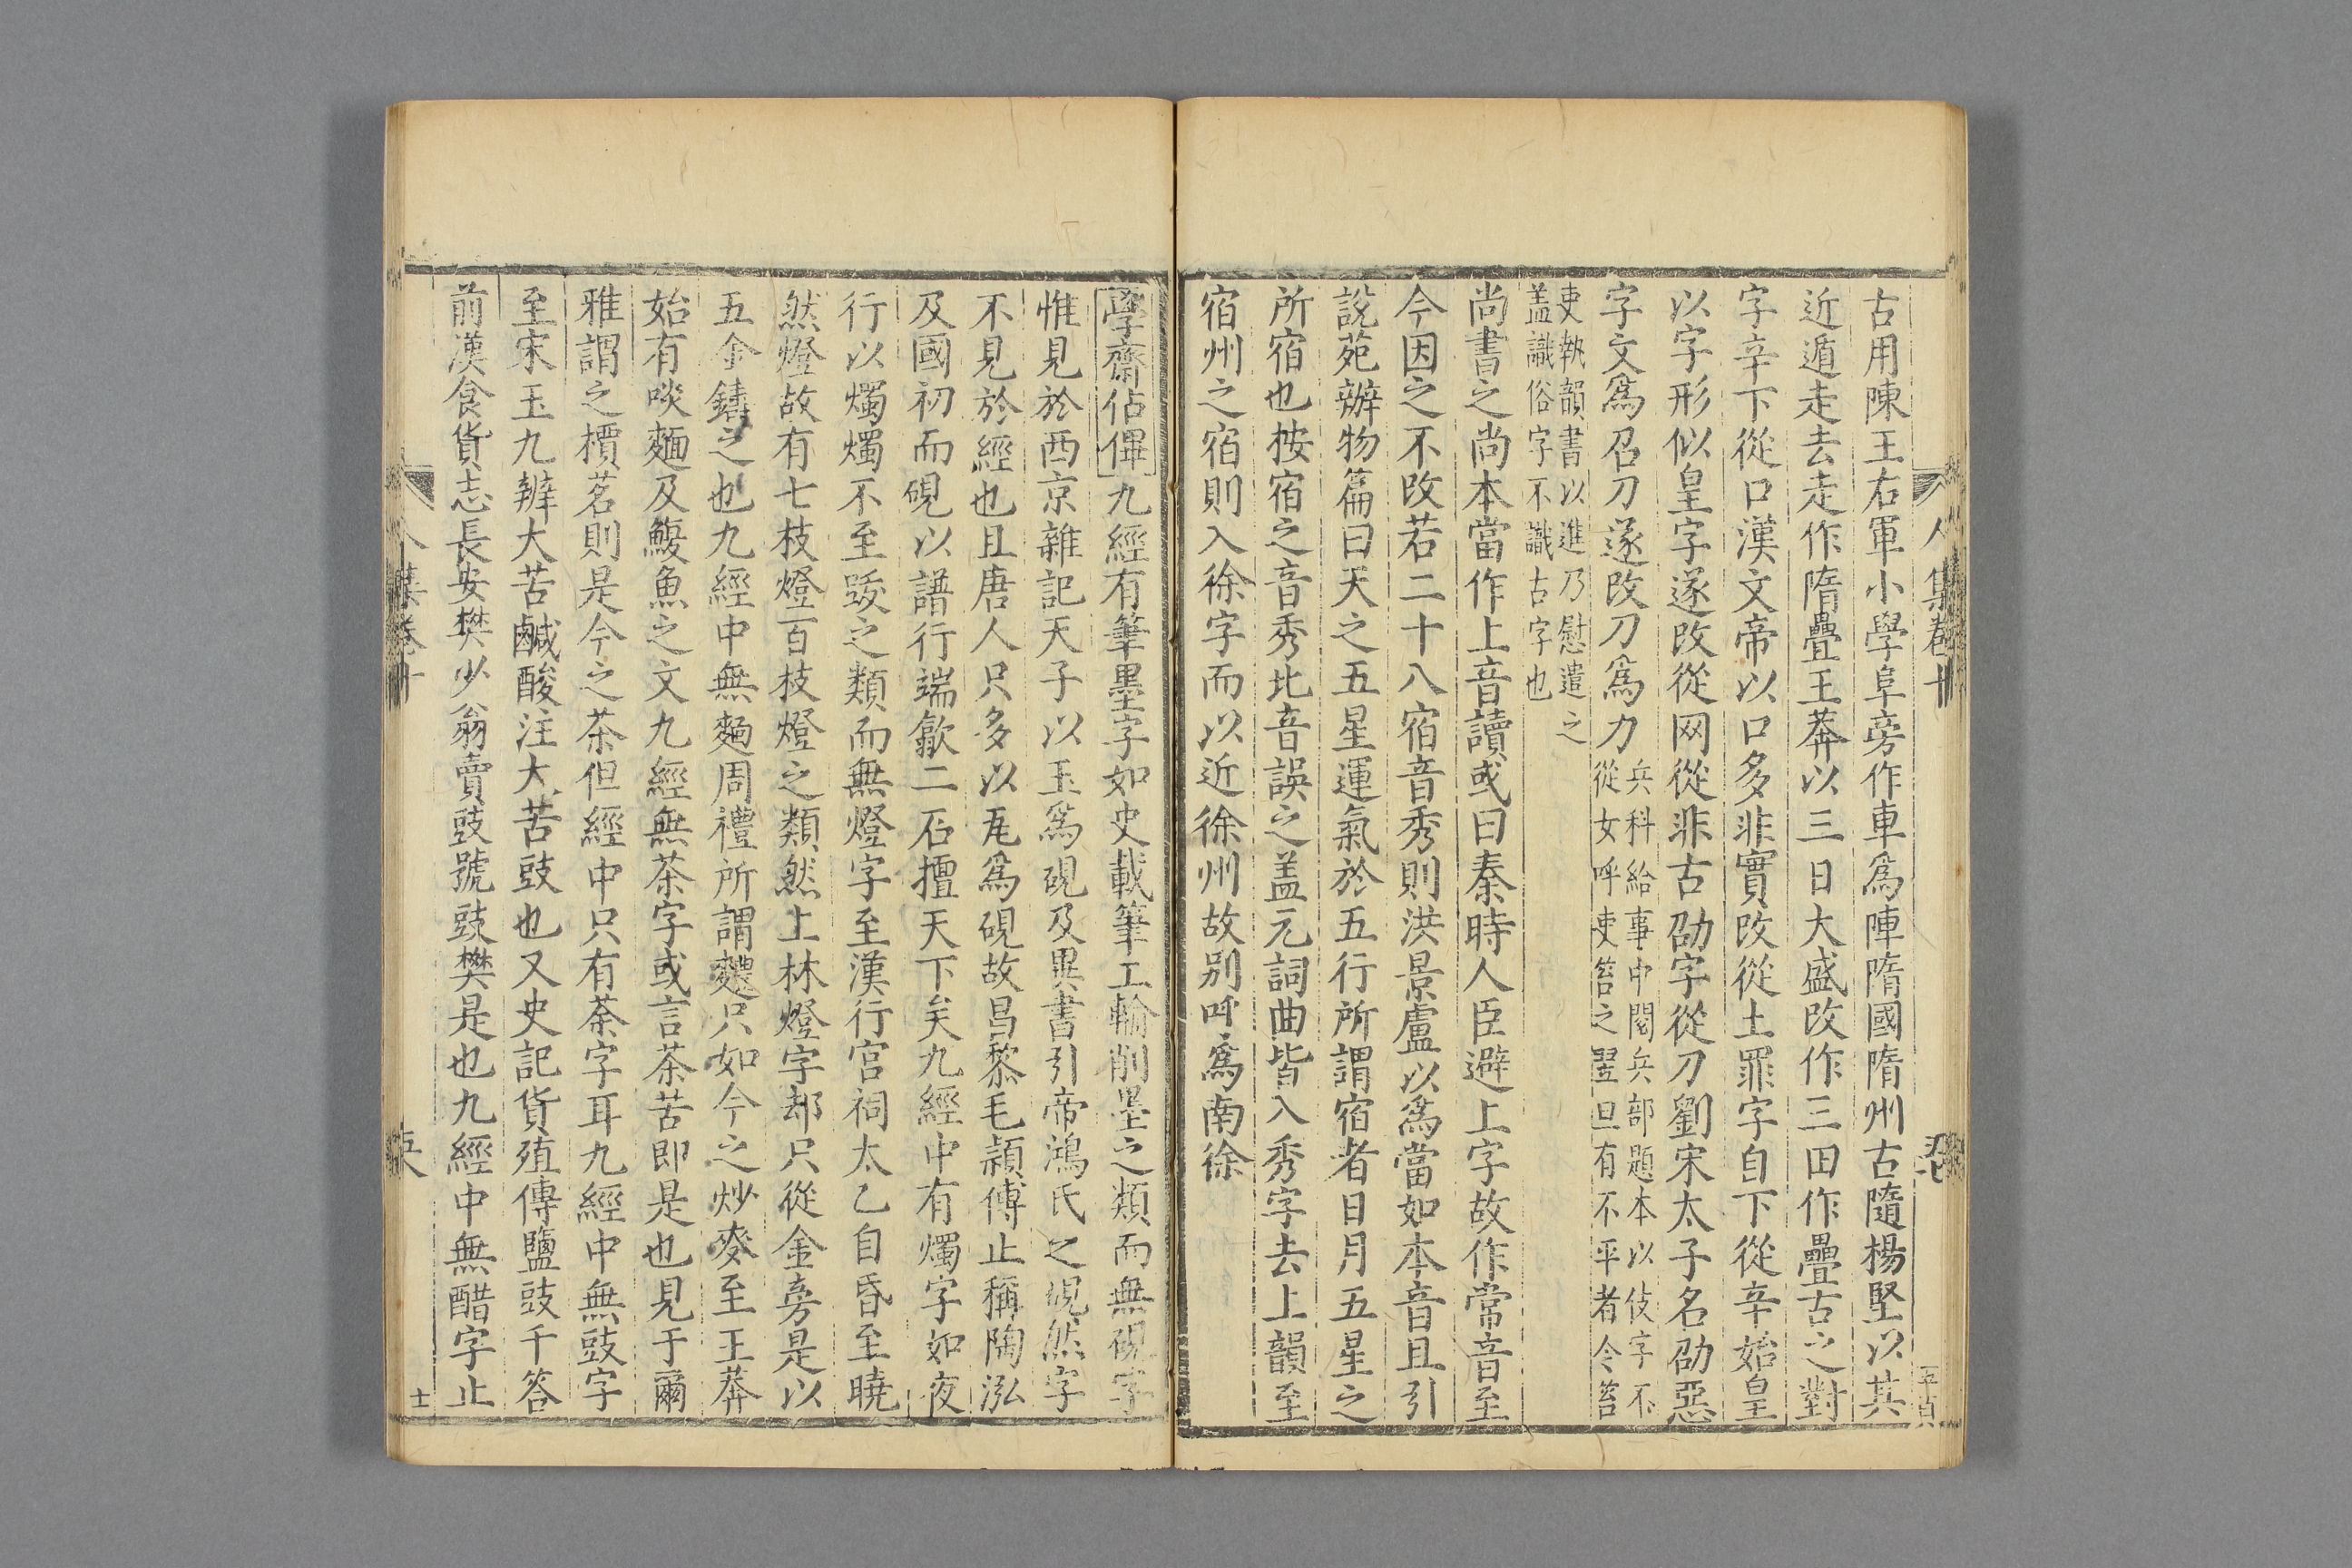 古用陳王右軍小學阜旁作車爲陣隋國隋州古隨楊堅以其
近遁走去走作隋疊王莽以三日大盛改作三田作疊古之對
字辛下從口漢文帝以口多非實改從土罪字自下從辛始皇
以字形似皇字遂改從网從非古劭字從刀劉宋太子名劭惡
字文爲召刀遂改刀爲力兵科給事中閱兵部題本以伎字不
從女呼吏笞之翌旦有不平者令笞
吏執韻書以進乃慰遣之
盖識俗字不識古字也
尚書之尚本當作上音讀或曰秦時人臣避上字故作常音至
今因之不改若二十八宿音秀則洪景盧以爲當如本音且引
說苑辦物篇曰天之五星運氣於五行所謂宿者日月五星之
所宿也按宿之音秀比音誤之盖元詞曲皆入秀字去上韻至
宿州之宿則入徐字而以近徐州故别呼爲南徐
學齋佔俾九經有筆墨字如史載筆工輸削墨之類而無硯字
惟見於西京雜記天子以玉爲硯及異書引帝鴻氏之硯然字
不見於經也且唐人只多以瓦爲硯故昌黎毛頴傳止稱陶泓
及國初而硯以譜行端歙二石擅天下矣九經中有燭字如夜
行以燭燭不至跋之類而無燈字至漢行宫祠太乙自昏至曉
然燈故有七枝燈百枝燈之類然上林燈字却只從金旁是以
五金鑄之也九經中無麵周禮所謂麷只如今之炒麥至王莽
始有啖麵及鰒魚之文九經無茶字或言茶苦即是也見于爾
雅謂之檟茗則是今之茶但經中只有荼字耳九經中無豉字
至宋玉九辨大苦鹹酸注大苦豉也又史記貨殖傳鹽豉千荅
前漢食貨志長安樊少翁賣豉號豉樊是也九經中無醋字止
人集卷十
士